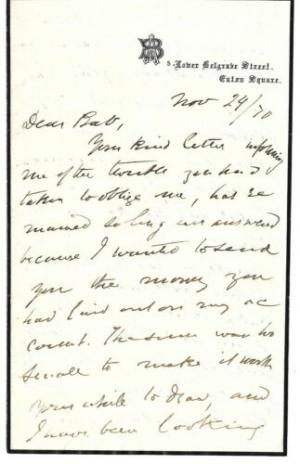 5. Lower Belgrave Street.
Eaton Square.
Nov 29/70
Dear Bab,
Your kind letter informing
me of the trouble you had
taken to oblige me, has re
mained so long unanswered
because I wanted to send
you the money you
had laid out on my ac
count. The sum was too
small to make it worth
your while to draw, and
I have been looking